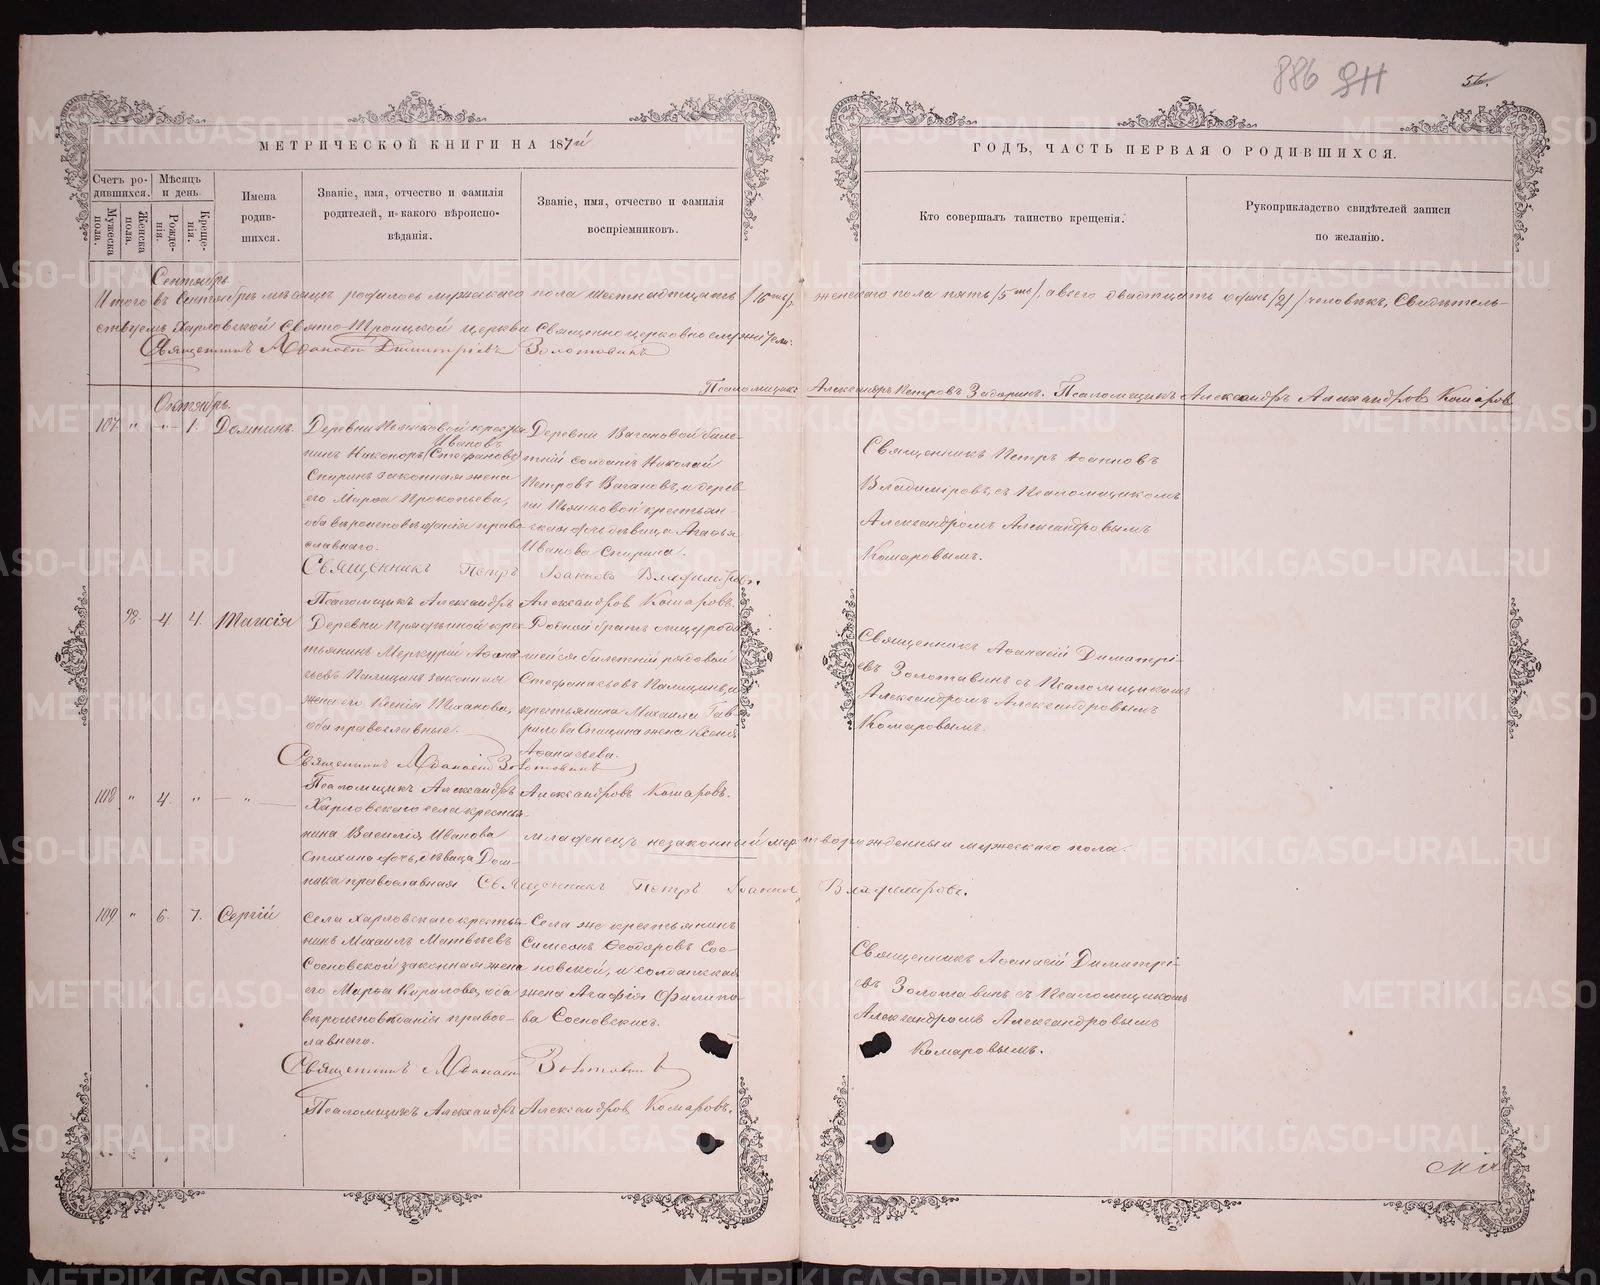 886 ЯН
56.
МЕТРИЧЕСКОЙ КНИГИ НА 187
ГОДЪ, ЧАСТЬ ПЕРВАЯ О РОДИВШИХСЯ.
Счетъ родившихся.
Мужеска пола.
Женска пола.
Мѣсяцъ и день
Рожденія.
Крещенія.
Имена родившихся.
Званіе, имя, отчество и фамилія
родителей, и какого вѣроиспо-
вѣданія.
Званіе, имя, отчество и фамилія
воспріемниковъ.
Кто совершалъ таинство крещенія.
Рукоприкладство свидѣтелей записи
по желанію.
Сентябрь
Итого въ Сентябрѣ мѣсяцѣ родилось мужескаго пола шестнадцать /16ть/, женскаго пола пять /5ть/, а всего двадцать одинъ /21/ человѣкъ, Свидѣтель-
ствуемъ Харловской Свято-Троицкой церкви Священноцерковнослужители:
Священникъ Аѳанасій Димитріевъ Золотавинъ
Псаломщикъ Александръ Петровъ Задоринъ. Псаломщикъ Александръ Александровъ Комаровъ
Октябрь.
107 " - " - 1. Домнинъ
Деревни Пьянковой кресть
Ивановъ
нинъ Никоноръ (Стефановъ)
Спиринъ законная жена
его Марѳа Прокопьева,
оба вѣроисповѣданія право
славнаго.
Деревни Вагановой биле-
тній солдатъ Николай
Петровъ Вагановъ, и дерев-
ни Пьянковой крестьян-
ская дочь дѣвица Агаѳья
Иванова Спирина.
Священникъ Петръ Іоанновъ
Владиміровъ, съ Псаломщикомъ
Александромъ Александровымъ
Комаровымъ.
Священникъ Петръ Іоанновъ Владиміровъ.
Псаломщикъ Александръ Александровъ Комаровъ.
98. 4 4. Таисія
Деревни кре-
тьянинъ Меркурій Аѳана
сьевъ Палицынъ законная
жена его Ксенія Тиханова,
оба православные.
Родной братъ отцу родив
шейся билетній рядовой
Палицынъ, и
крестьянина Михаила Гав-
рилова жена Ксенія
Аѳанасьева.
Священникъ Аѳанасій Димитрі-
евъ Золотавинъ съ Псаломщикомъ
Александромъ Александровымъ
Комаровымъ.
Священникъ Аѳанасій Золотавинъ
Псаломщикъ Александръ Александровъ Комаровъ.
108 " 4. " - " -
Харловскаго села крестья
нина Василія Иванова
Стихина дочь, дѣвица Дом-
ника православная
младенецъ незаконный мертворожденный мужескаго пола.
Священникъ Петръ Іоанновъ Владиміровъ.
109 " 6. 7. Сергій
Села Харловскаго кресть-
нинъ Михаилъ Матвѣевъ
Сосновской законная жена
его Марѳа Кирилова, оба
вѣроисповѣданія правос-
лавнаго.
Села же крестьянинъ
Симеонъ Ѳеодоровъ Сос-
новской, и солдатская
жена Агафія Филипо-
ва Сосновскихъ.
Священникъ Аѳанасій Димитрі-
евъ Золотавинъ съ Псаломщикомъ
Александромъ Александровымъ
Комаровымъ.
Священникъ Аѳанасій Золотавинъ
Псаломщикъ Александръ Александровъ Комаровъ.
METRIKI.GASO-URAL.RU